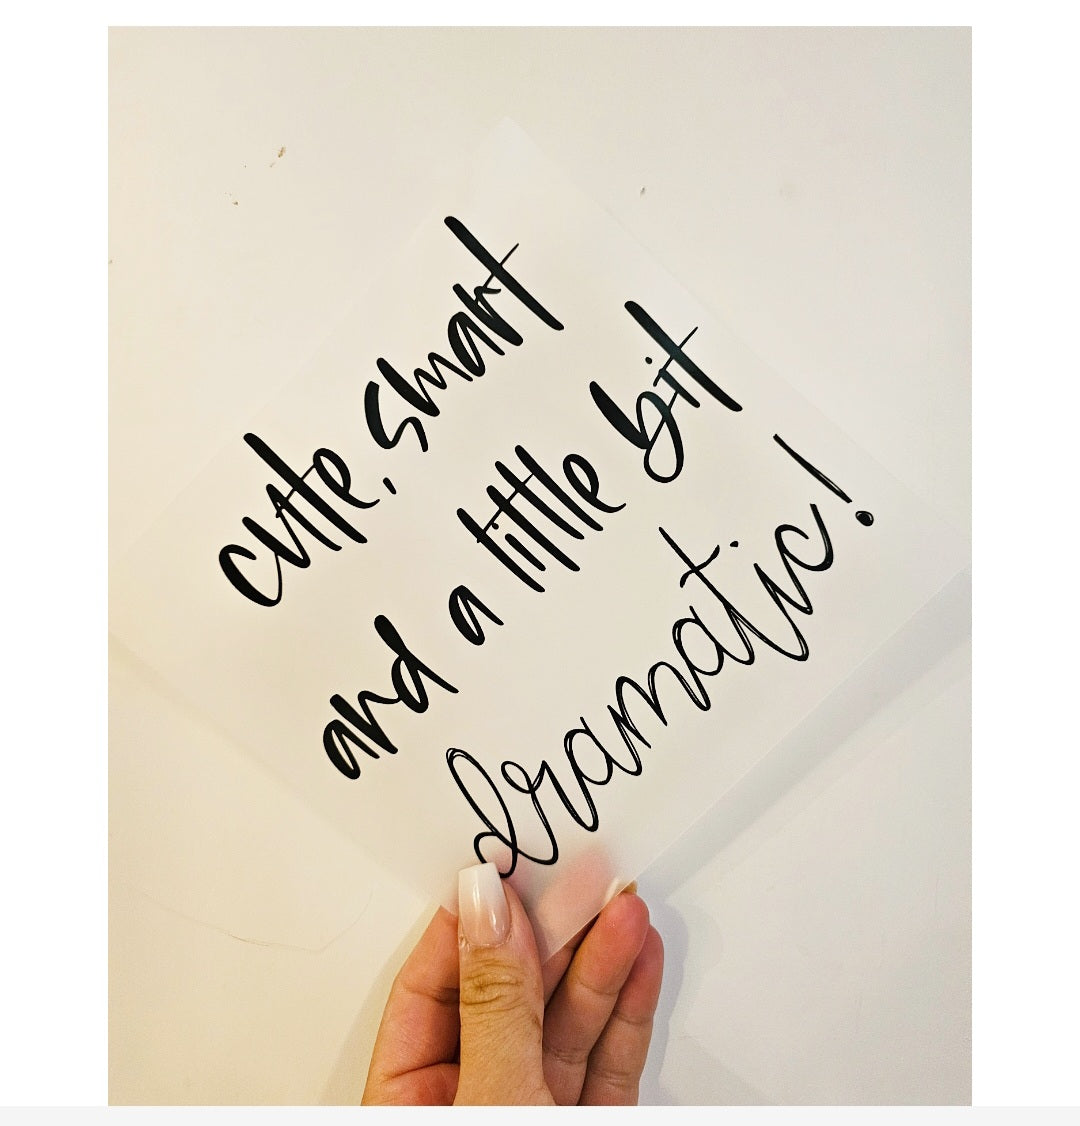 cute, smart
and a little bit
dramatic!